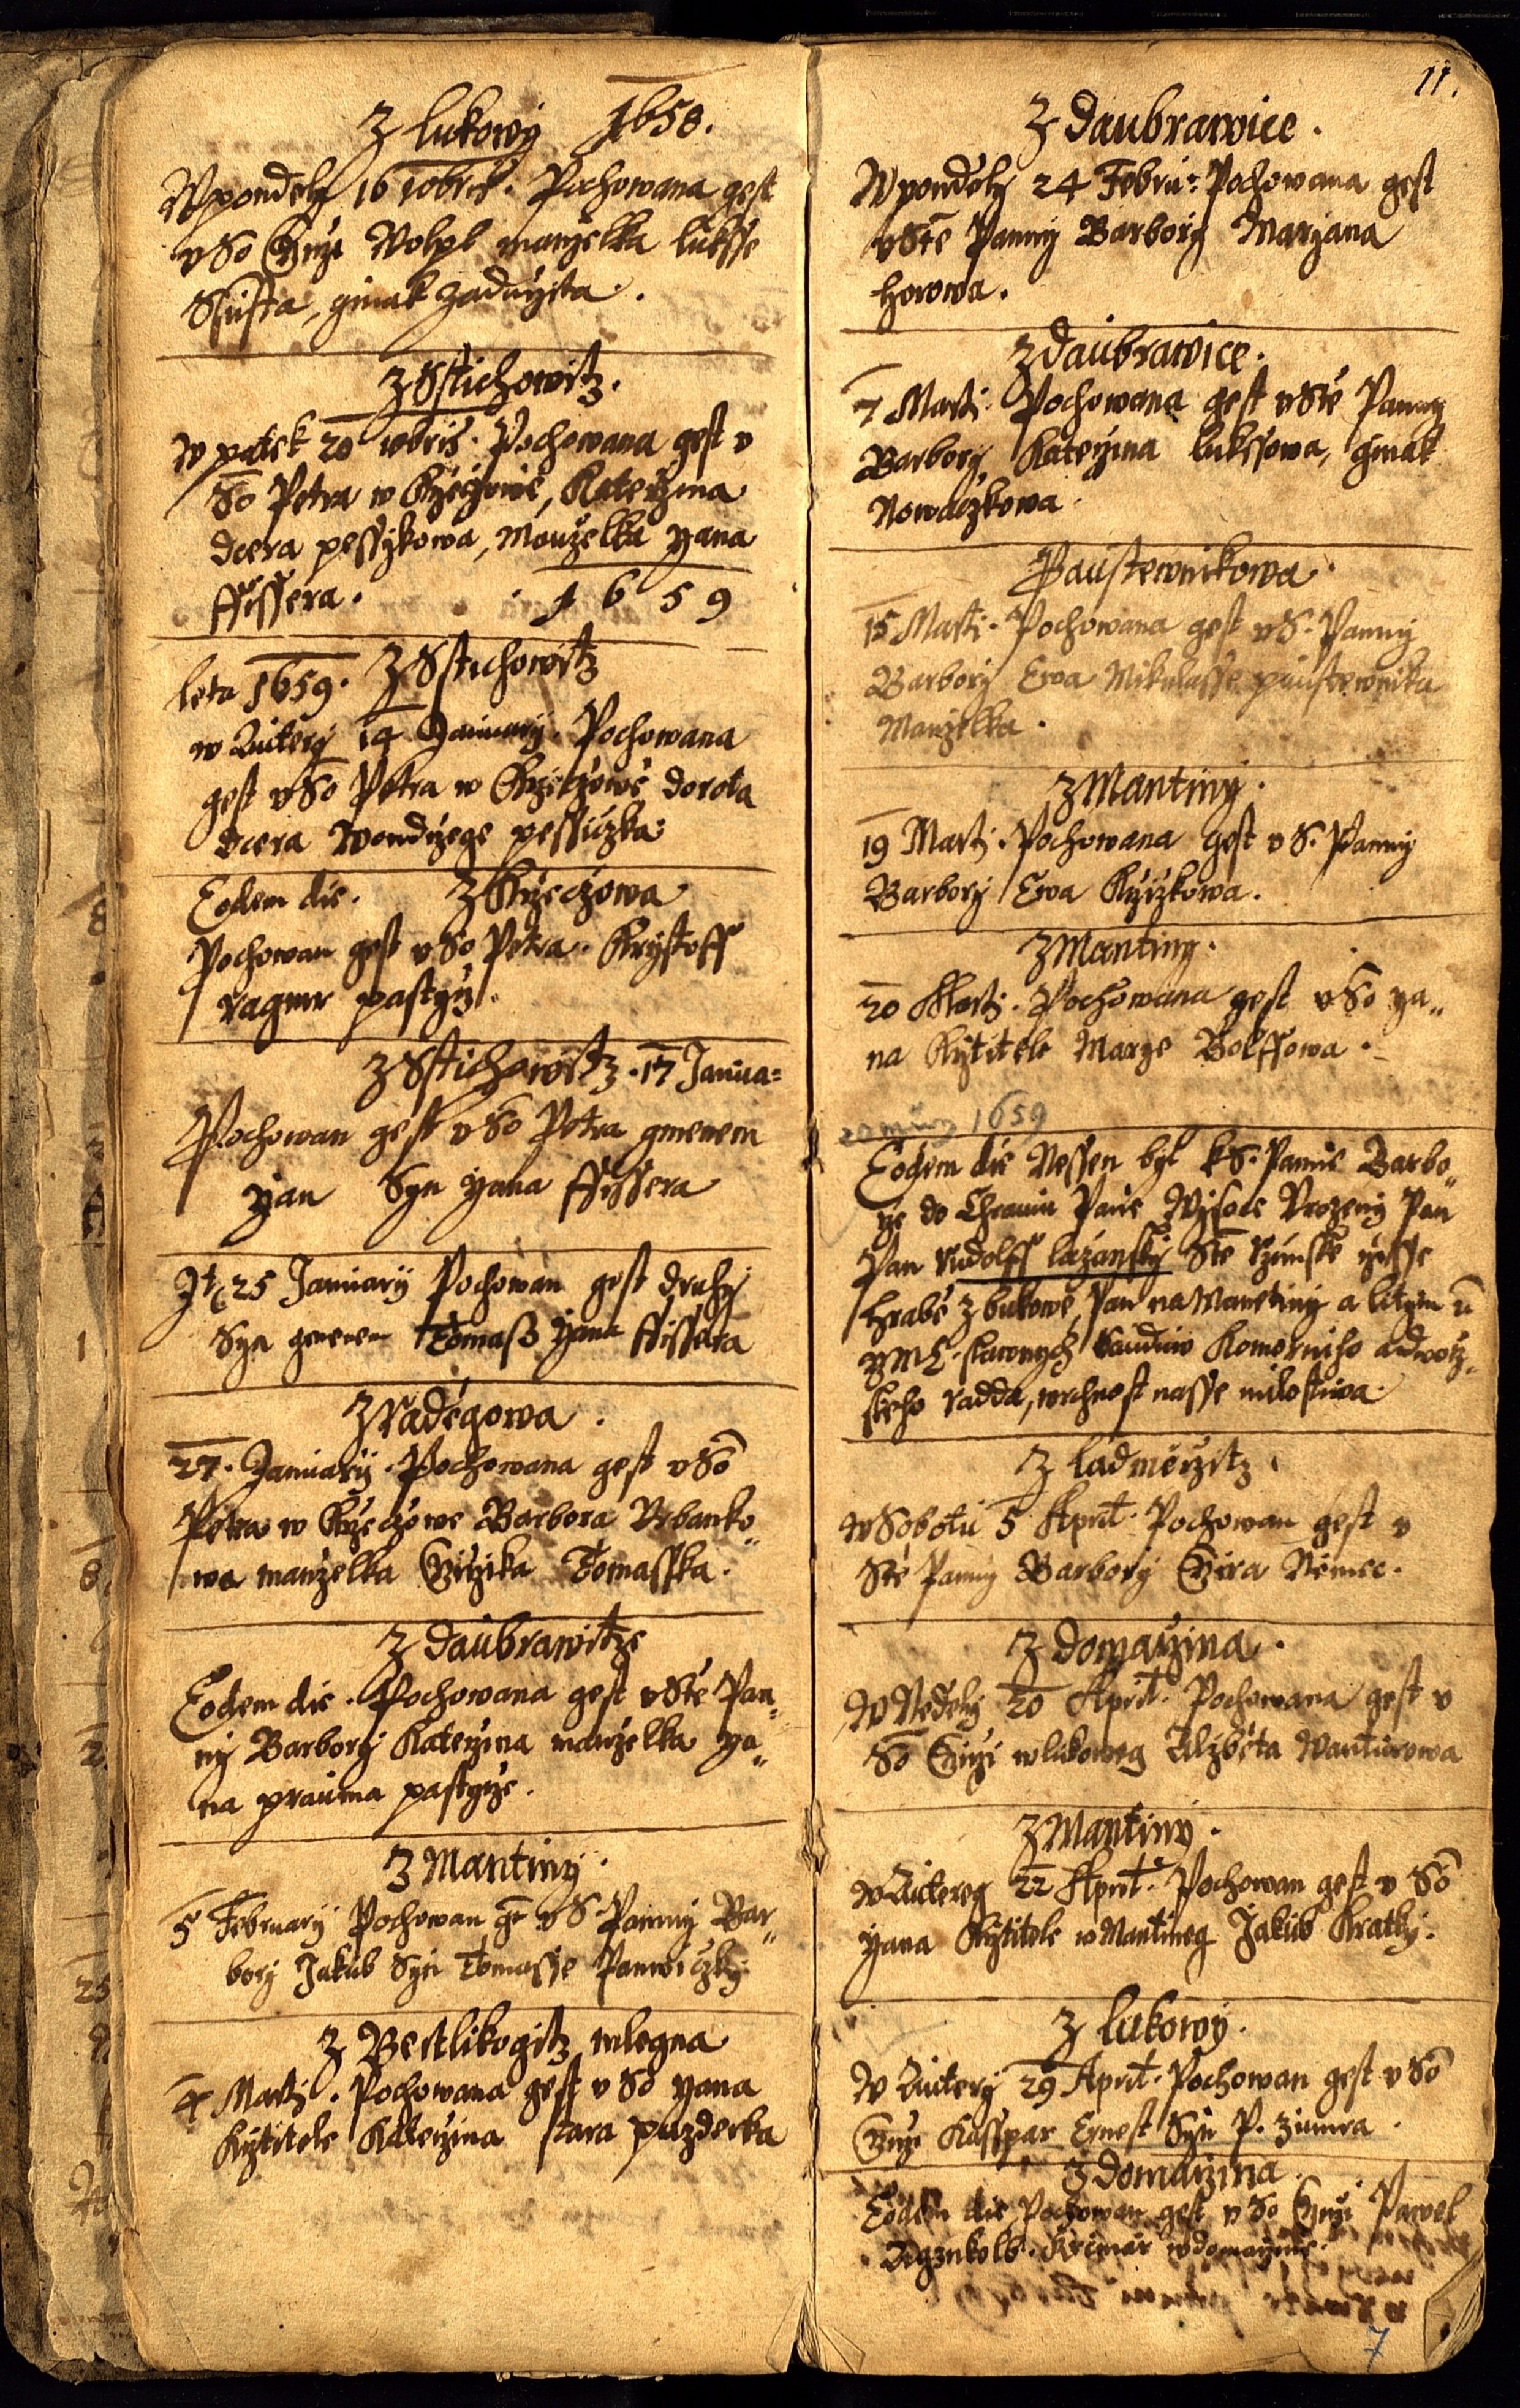 Z lukowy 1658.
W pondely 16 10bris. Pochowana gest
v So Girzi manzelka luksse
ginak
Z Sstichowitz.
W patek 20 10bris. Pochowana gest v
So Petra w Krzeczowe, Katerzina
dcera pessykowa, Manzelka yana
ffissera.
1659
leta 1659. Z Sstichowitz
w Autery 14 January. Pochowana
gest v So Petra w Krzeczowe dorota
dcera Wondrzege pessiczka
Eodem die. Z Krzeczowa
Pochowan gest v So Petra. Krystoff
pastyrz.
Z Sstichowitz. 17 Janua=
Pochowan gest v So Petra gmenem
yan Syn yana ffissera
It. 25 January Pochowan gest druhy
Syn gmenem Tomass yana ffissera
Z radegowa.
27. January. Pochowana gest v So
Petra w Krzeczowe Barbora Vrbanko„
wa manzelka Girzika Tomasska.
Z daubrawitze
Eodem die. Pochowana gest v Ste Pan„
ny Barbory Katerzina manzelka ya„
na prauma pastyrze.
Z Mantiny.
5 February Pochowan ge v S. Panny Bar„
bory Jakub Syn Tomasse Panwiczky
Z Bestlikogitz mlegna
4 Marti. Pochowana gest v So yana
Krztitele Katerzina stara pazderka
11.
Z daubrawice.
W pondely 24 Febru: Pochowana gest
v Ste Panny Barbory Maryana
howwa.
Z daubrawice.
7 Marti. Pochowana gest v Ste Panny
Barbory Katerzina lukssowa, ginak
Nowaczkowa.
Paustewnikowa.
15 Marti. Pochowana gest v S. Panny
Barbory Ewa Mikulasse paustewnika
Manzelka.
Z Mantiny.
19 Marti. Pochowana gest v S. Panny
Barbory Ewa Krzizkowa.
Z Mantiny.
20 Marti. Pochowana gest v So ya„
na Krztitele Marze Bolffowa.
20 März 1659
Eodem die Nessen byl k S. Panne Barbo„
rze do Chramu Pane Wysoce Vrozeny Pan
Pan Rudolff lazansky Ste Rzimske rzisse
hrabe z bukowe, Pan na Manetiny a
slawnych Saudu Komorniho a dwor„
skeho radda, wrchnost nasse milostiwa.
Z ladmerzitz.
W Sobotu 5 April. Pochowan gest v
Ste Panny Barbory Girra Nemec.
Z domazina.
W Nedely 20 April. Pochowana gest v
So Girzi w lukoweg Alzbeta Wanturowa
Z Mantiny.
W Autereg 22 April. Pochowan gest v So
yana Krztitele w Mantineg Jakub Kratky.
Z lukowy.
W Autery 29 April. Pochowan gest v So
Girzi Kasspar Ernest Syn P. ziumra.
Z domazina.
Eodem die Pochowan gest v So Girzi Pawel
Krcmar w domazine.
7